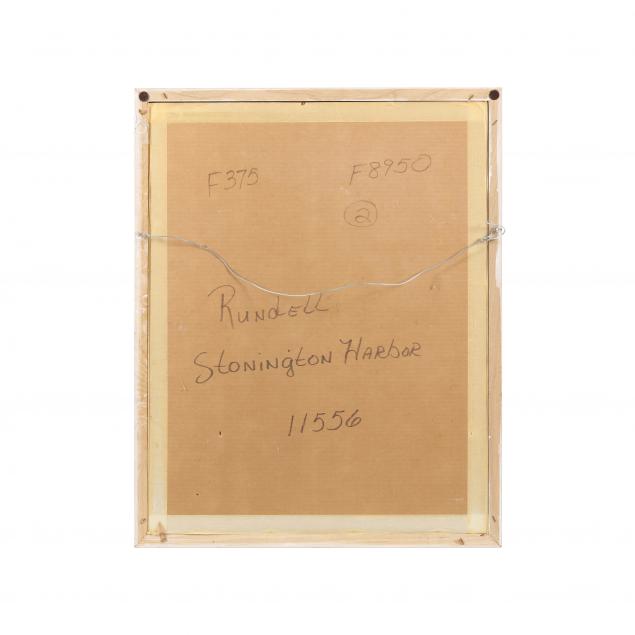 F375 F8950
2
Rundell
Stonington Harbor
11556